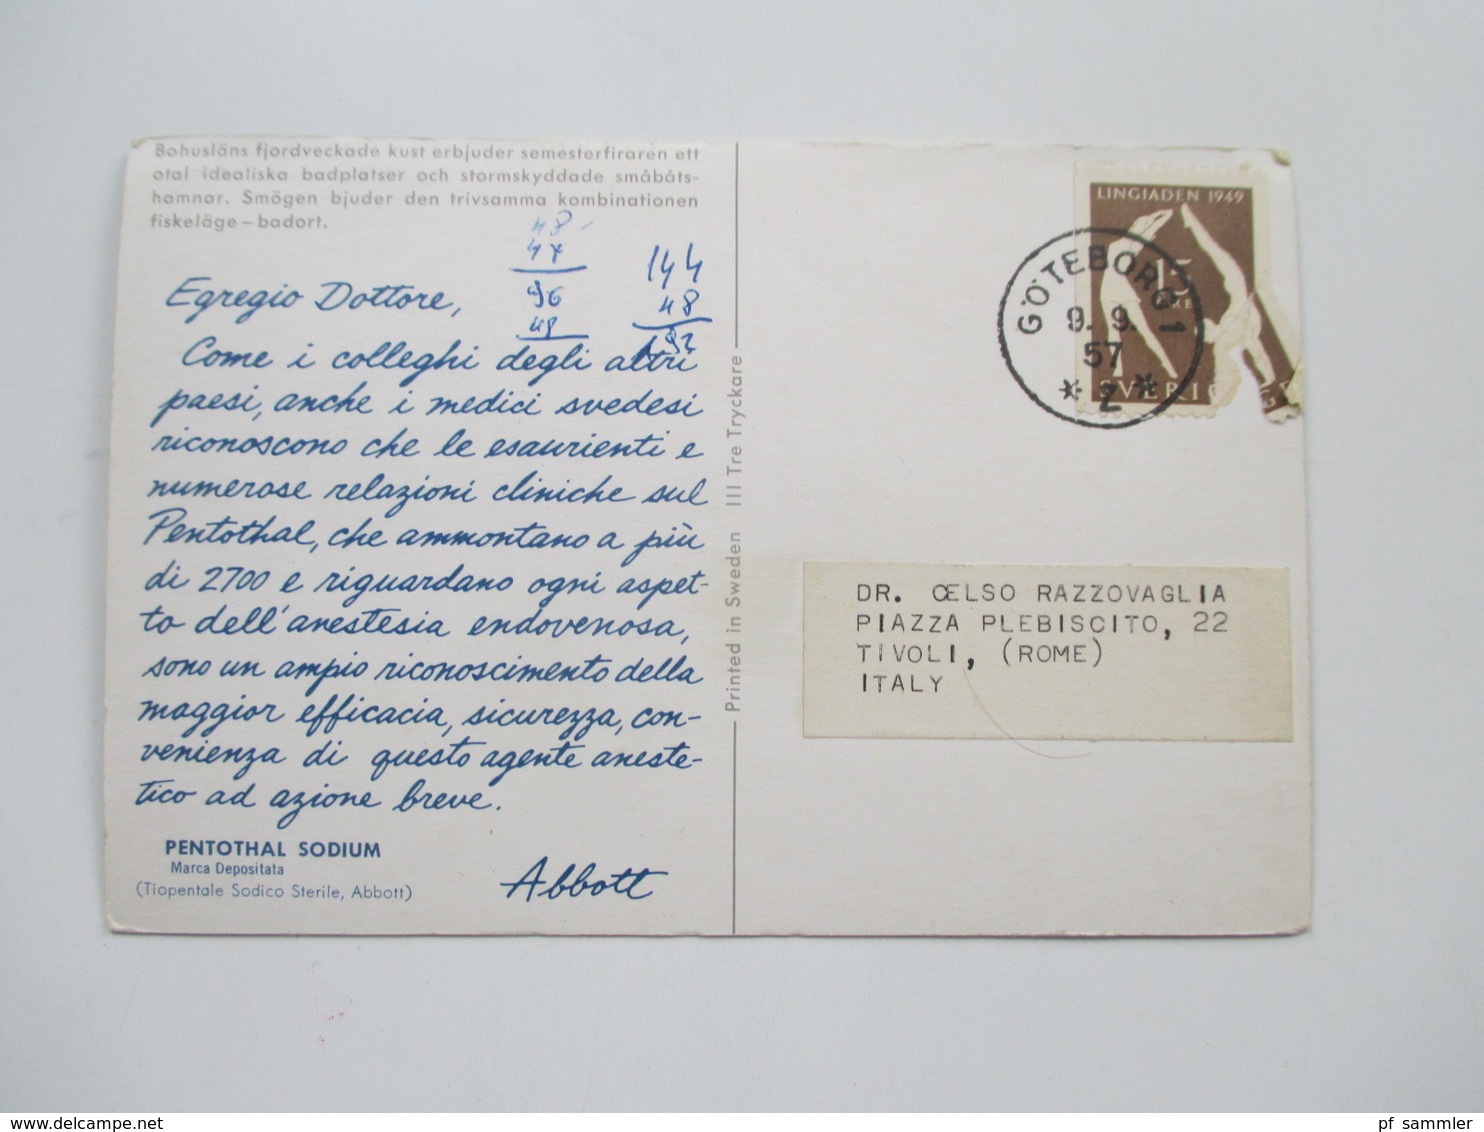 Bohusläns fjordveckade kust erbjuder semesterfiraren ett
otal idealiska badplatser och stormskyddade småbåts-
hamnar. Smögen bjuder den trivsamma kombinationen
fiskeläge – badort.
48
47
96
48
144
48
192
Egregio Dottore,
Come i colleghi degli altri
paesi, anche i medici svedesi
riconoscono che le esaurienti e
numerose relazioni cliniche sul
Pentothal, che ammontano a più
di 2700 e riguardano ogni aspet-
to dell'anestesia endovenosa,
sono un ampio riconoscimento della
maggior efficacia, sicurezza, con-
venienza di questo agente aneste-
tico ad azione breve.
PENTOTHAL SODIUM
Marca Depositata
(Tiopentale Sodico Sterile, Abbott)
Abbott
Printed in Sweden III Tre Tryckare
LINGIADEN 1949
15
SVERIGE
GÖTEBORG 1
9. 9.
57
* Z *
DR. CELSO RAZZOVAGLIA
PIAZZA PLEBISCITO, 22
TIVOLI, (ROME)
ITALY
delcampe.net
pf_sammler